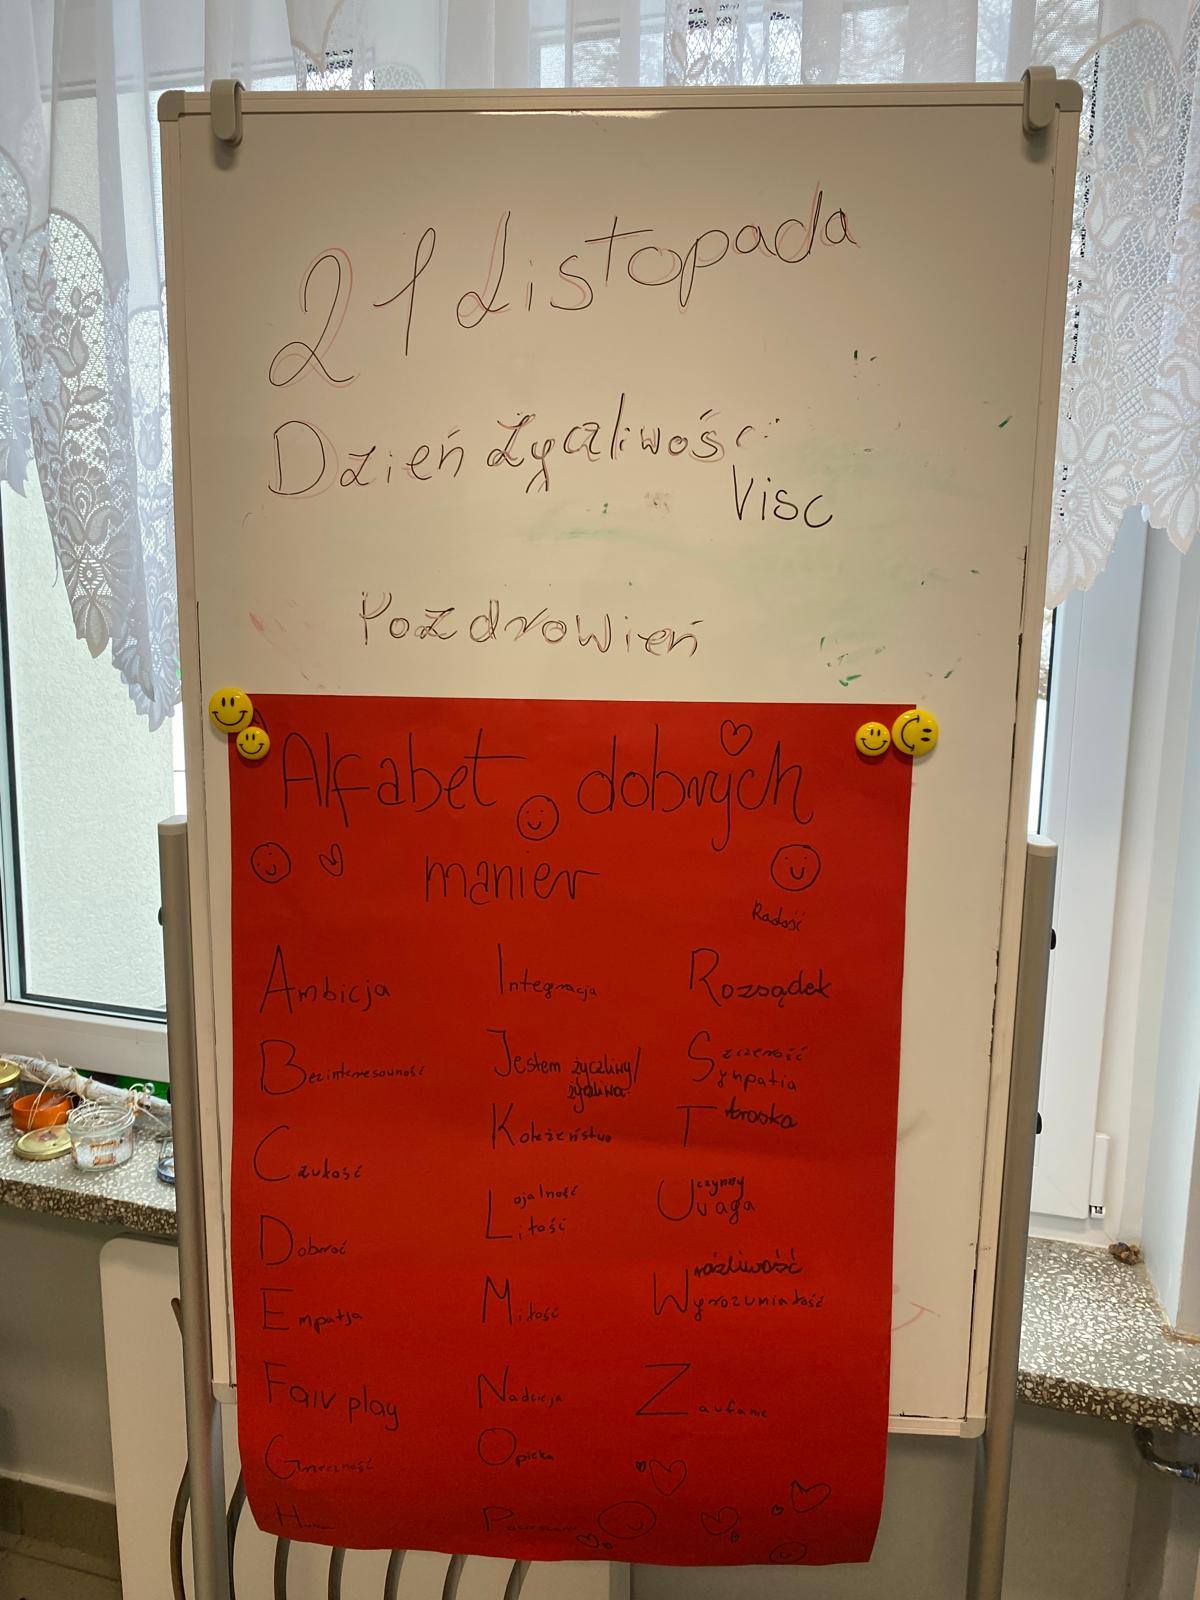 21 Listopada
Dzień Życzliwośc
i
Pozdrowień
Alfabet dobrych
manier
Radość
Ambicja
Bezinteresowność
Czułość
Dobroć
Empatja
Fair play
Grzeczność
Integracja
Jestem życzliwy/
życzliwa
Koleżeństwo
Lojalność
Litość
Miłość
Nadzieja
Opieka
Rozsądek
Szczerość
Sympatia
Troska
Uczynny
Uwaga
Wrażliwość
Wyrozumiałość
Zaufanie